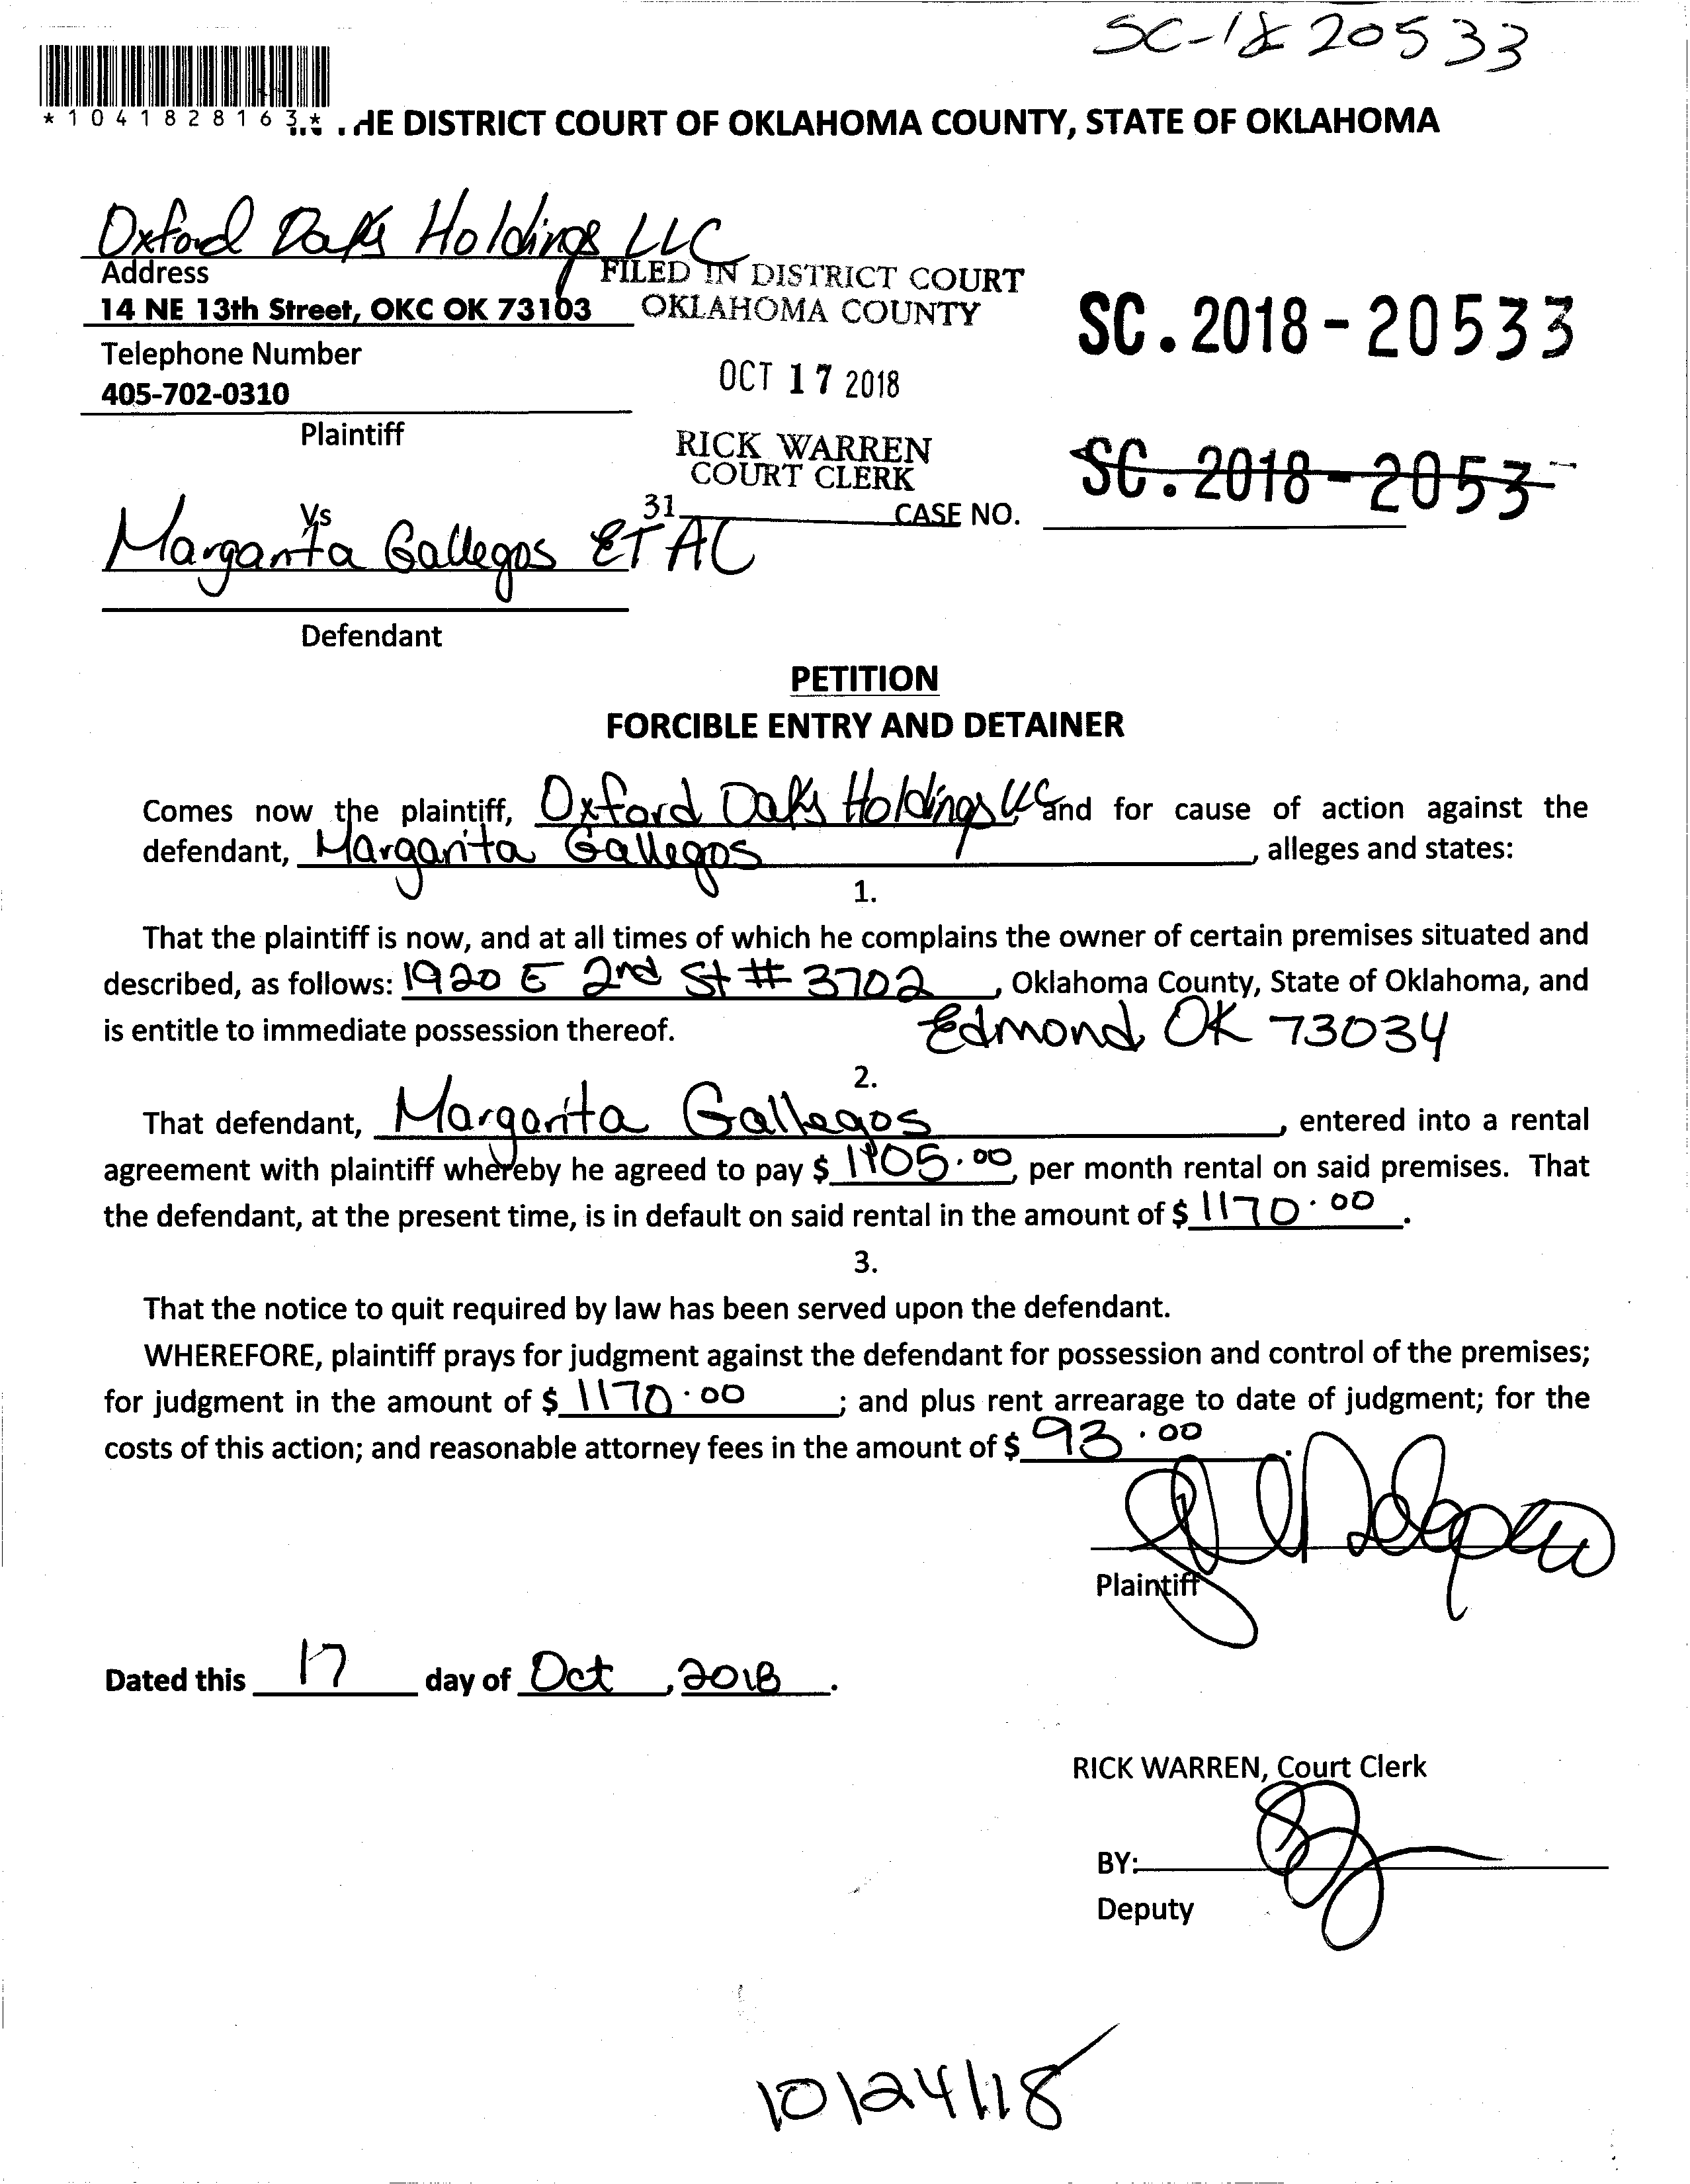 SC-18 20533
*1041828163*
HE DISTRICT COURT OF OKLAHOMA COUNTY, STATE OF OKLAHOMA
Oxford Oaks Holdings LLC
Address
14 NE 13th Street, OKC OK 73103
Telephone Number
405-702-0310
Plaintiff
FILED IN DISTRICT COURT
OKLAHOMA COUNTY
OCT 17 2018
RICK WARREN
COURT CLERK
31
SC.2018-20533
SC.2018-2053
CASE NO.
Vs
Margarita Gallegos ET AL
Defendant
PETITION
FORCIBLE ENTRY AND DETAINER
Comes now the plaintiff, Oxford Oaks Holdings LLC and for cause of action against the
defendant, Margarita Gallegos, alleges and states:
1.
That the plaintiff is now, and at all times of which he complains the owner of certain premises situated and
described, as follows: 1920 E 2nd St # 3702, Oklahoma County, State of Oklahoma, and
is entitle to immediate possession thereof. Edmond OK 73034
2.
That defendant, Margarita Gallegos, entered into a rental
agreement with plaintiff whereby he agreed to pay $ 1105.00, per month rental on said premises. That
the defendant, at the present time, is in default on said rental in the amount of $ 1170.00.
3.
That the notice to quit required by law has been served upon the defendant.
WHEREFORE, plaintiff prays for judgment against the defendant for possession and control of the premises;
for judgment in the amount of $ 1170.00; and plus rent arrearage to date of judgment; for the
costs of this action; and reasonable attorney fees in the amount of $ 93.00
Plaintiff
Dated this 17 day of Oct, 2018.
RICK WARREN, Court Clerk
BY:
Deputy
10/24/18